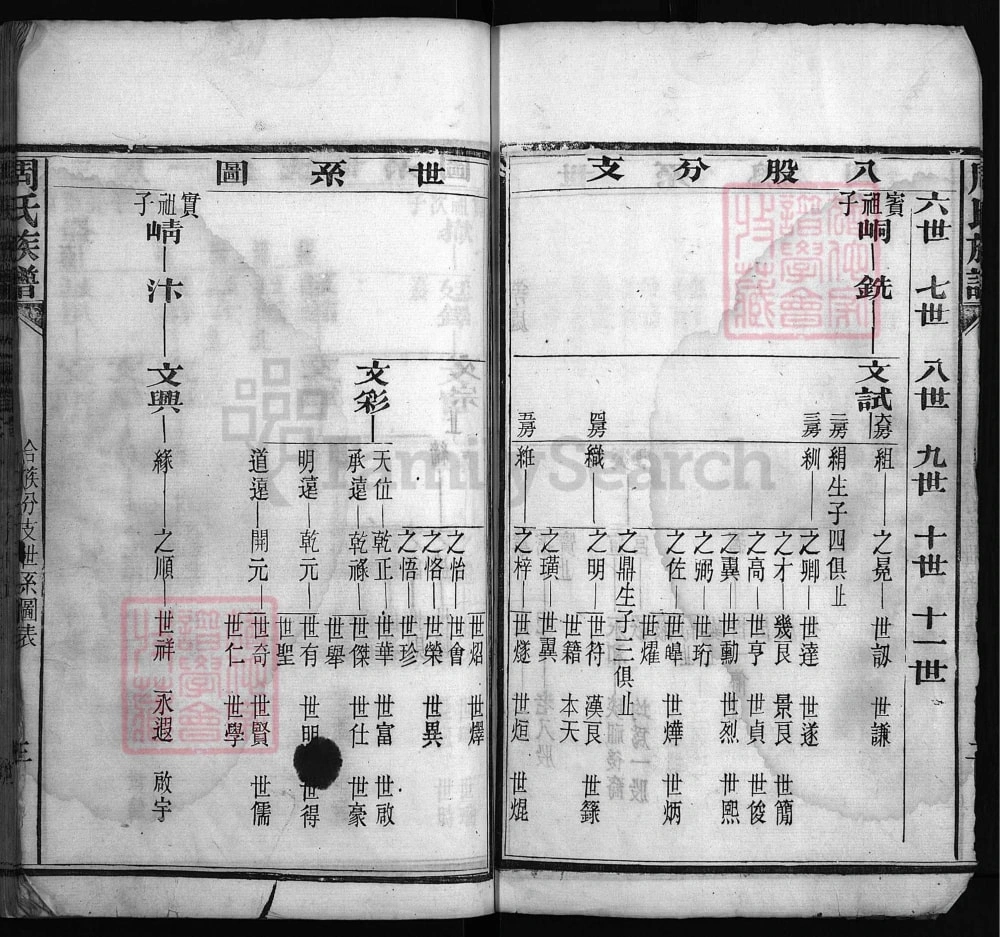 八股分支
六世 七世 八世 九世 十世 十一世
寳祖子
峒—銑—文試
大房 組—之冕—世訒 世謙
二房 絹生子四俱止
三房 紃—之卿—世達 世遂
之才—幾艮 景艮 世簡
之高—世亨 世貞 世俊
之翼—世勳 世烈 世熙
之弼—世珩
之佐—世皡 世燁 世炳
世燿
之鼎生子三俱止
四房 織—之明—世符 漢艮 世籙
世籍 本天
之璜—世翼
五房 維—之梓—世燧 世烜 世焜
世系圖
世炤 世燡
之怡—世會
之恪—世榮 世異
之悟—世珍
文彩
天位—乾正—世華 世富 世啟
承遠—乾祿—世傑 世仕 世豪
世舉
明遠—乾元—世有 世明 世得
世聖
道遠—開元—世奇 世賢 世儒
世仁 世學
寳祖子
崝—汴—文興—緣—之順—世祥 永遐 啟宇
周氏族譜
合族分支世系圖表
FamilySearch